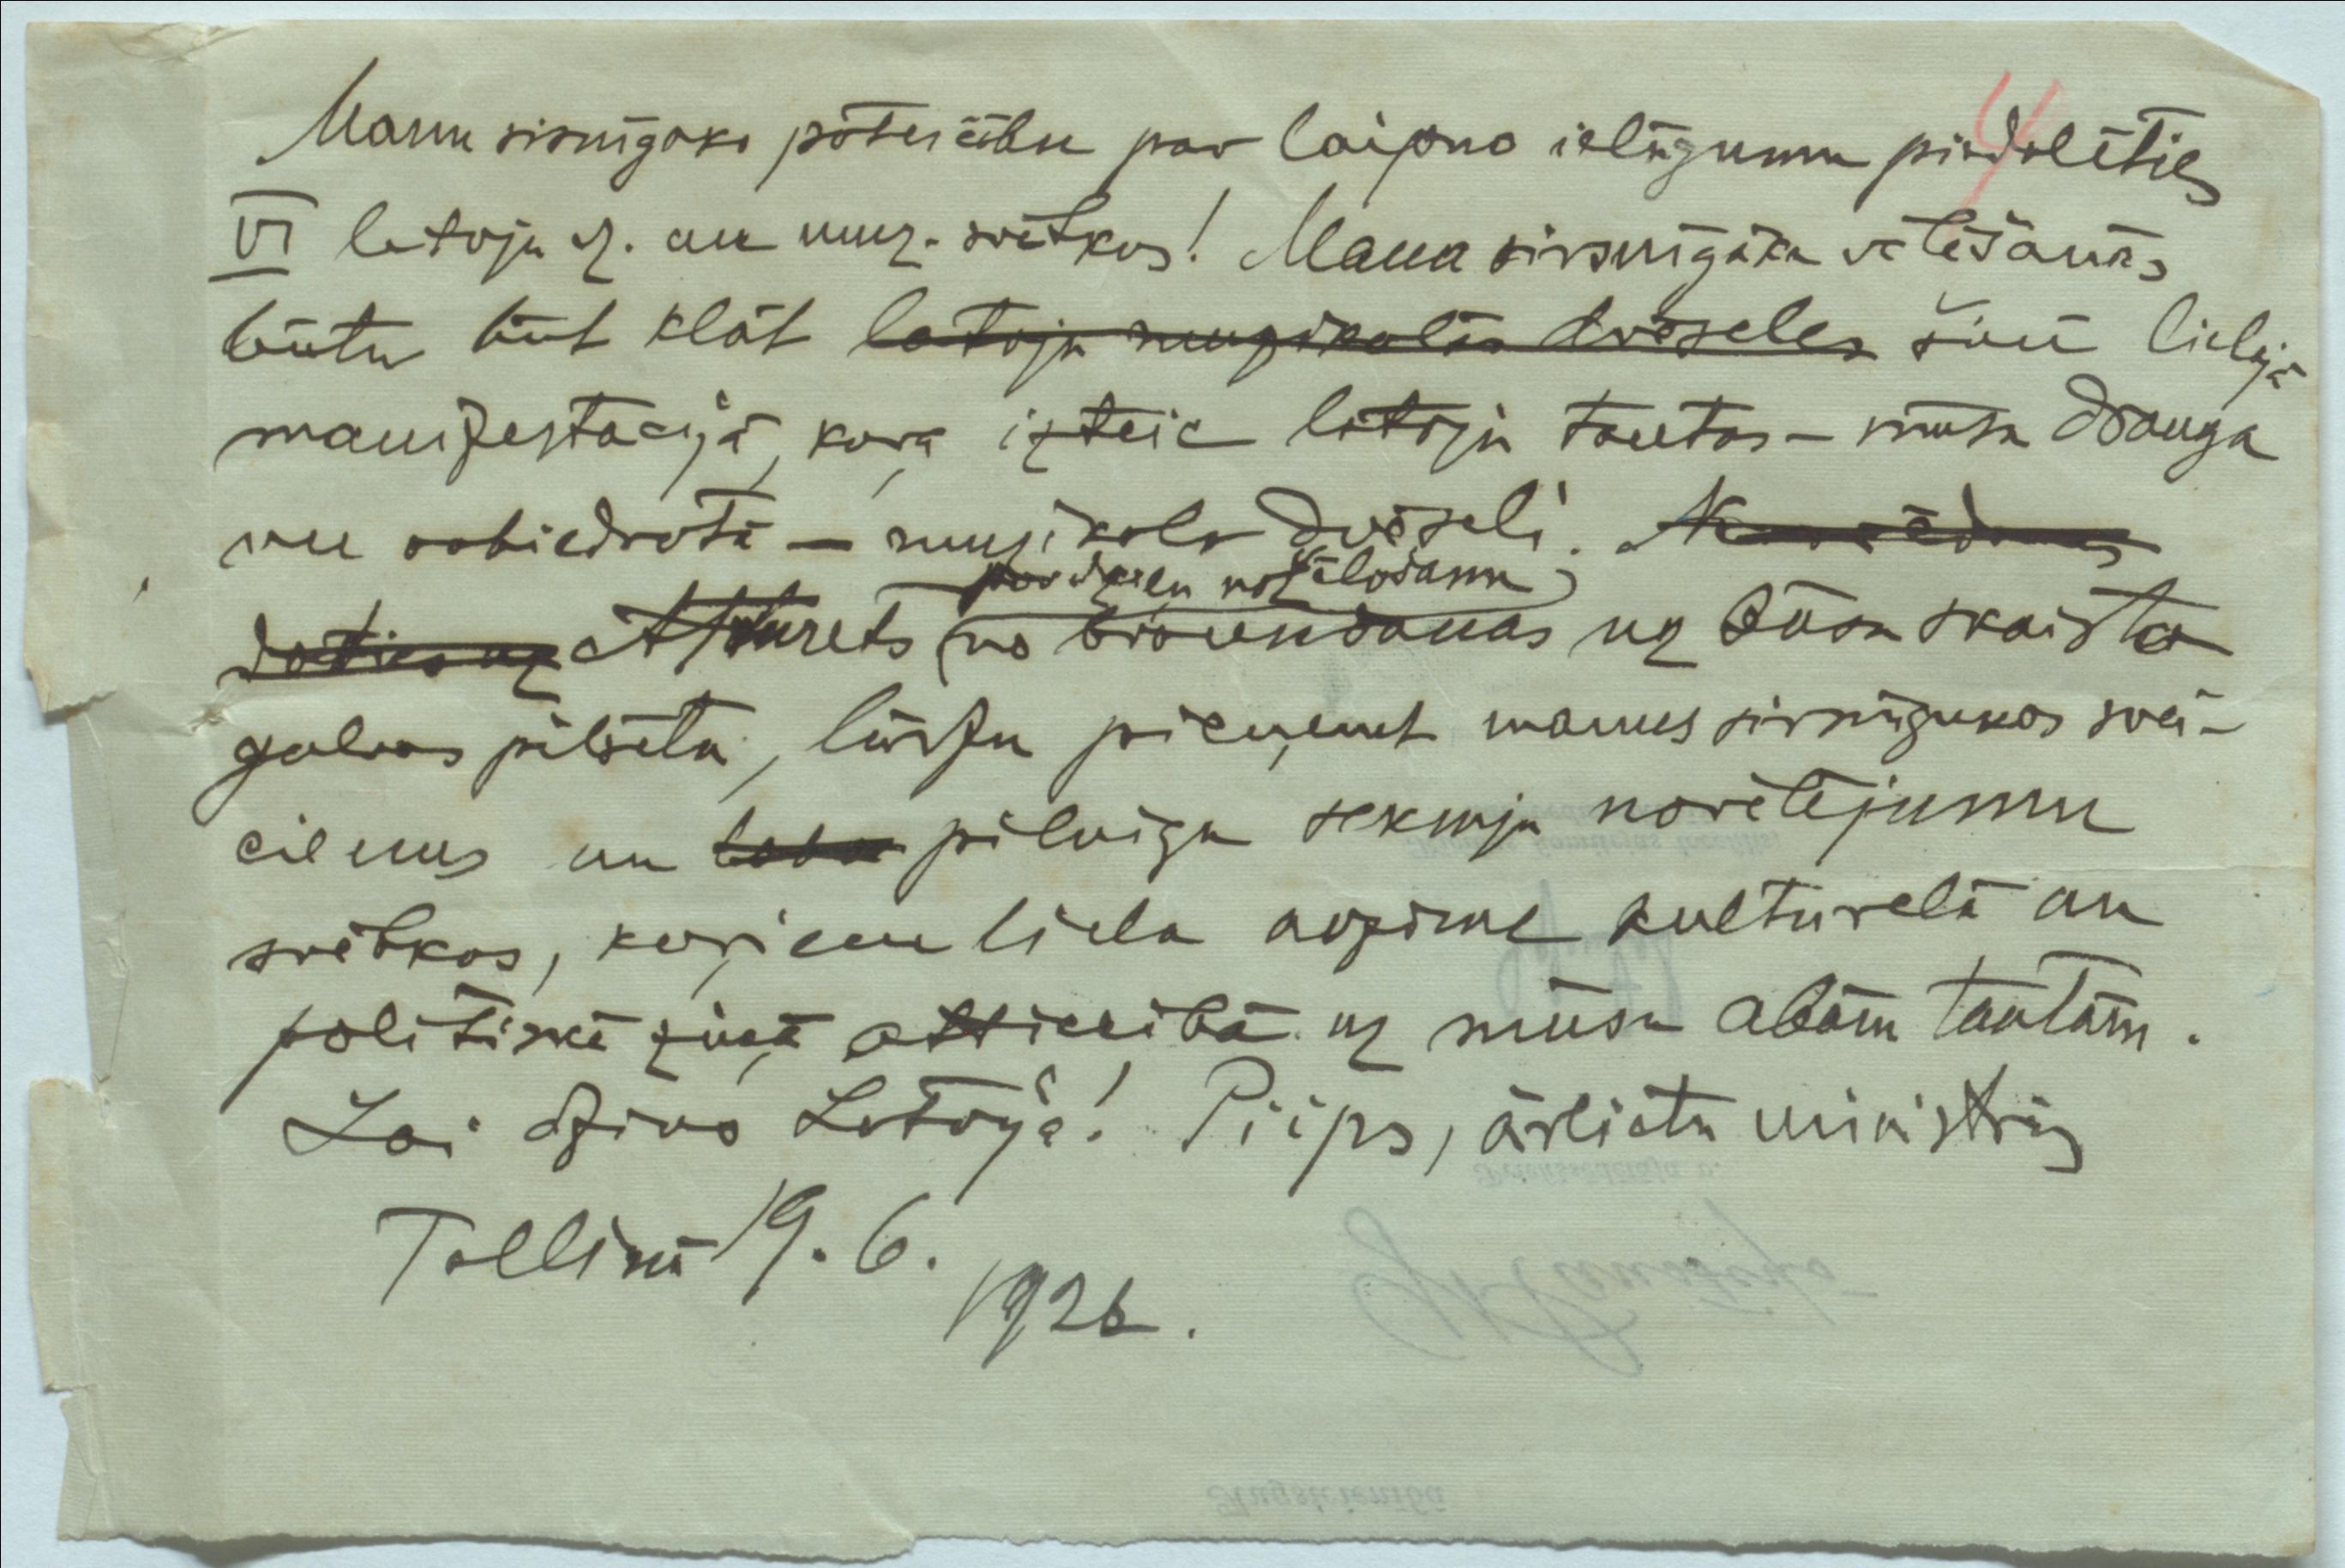 Manu sirsnīgako pateicību par laipno ielūgumu piedalīties
VI latvju dz. un muz. svētkos! Mana sirsnīgāka vēlēšanās
būtu būt klāt latvju muzikalās dvēseles šinī lielajā
manifestācijā, kuŗa izteic latvju tautas – mūsu drauga
un sabiedrotā – muzikalo dvēseli.
Atturets par dzieļu nožēlošanu
no braukšanas uz Jūsu skaisto
galvas pilsētu, lūdzu pieņemt manus sirsnīgakos svei-
cienus un pilnīgu sekmju novēlējumu
svētkos, kuŗiem liela nozīme kulturelā un
politiskā ziņā attiecibā uz mūsu abām tautām.
Lai dzīvo Latvija! Piips, ārlietu ministris
Tallinā 19. 6.
1926.